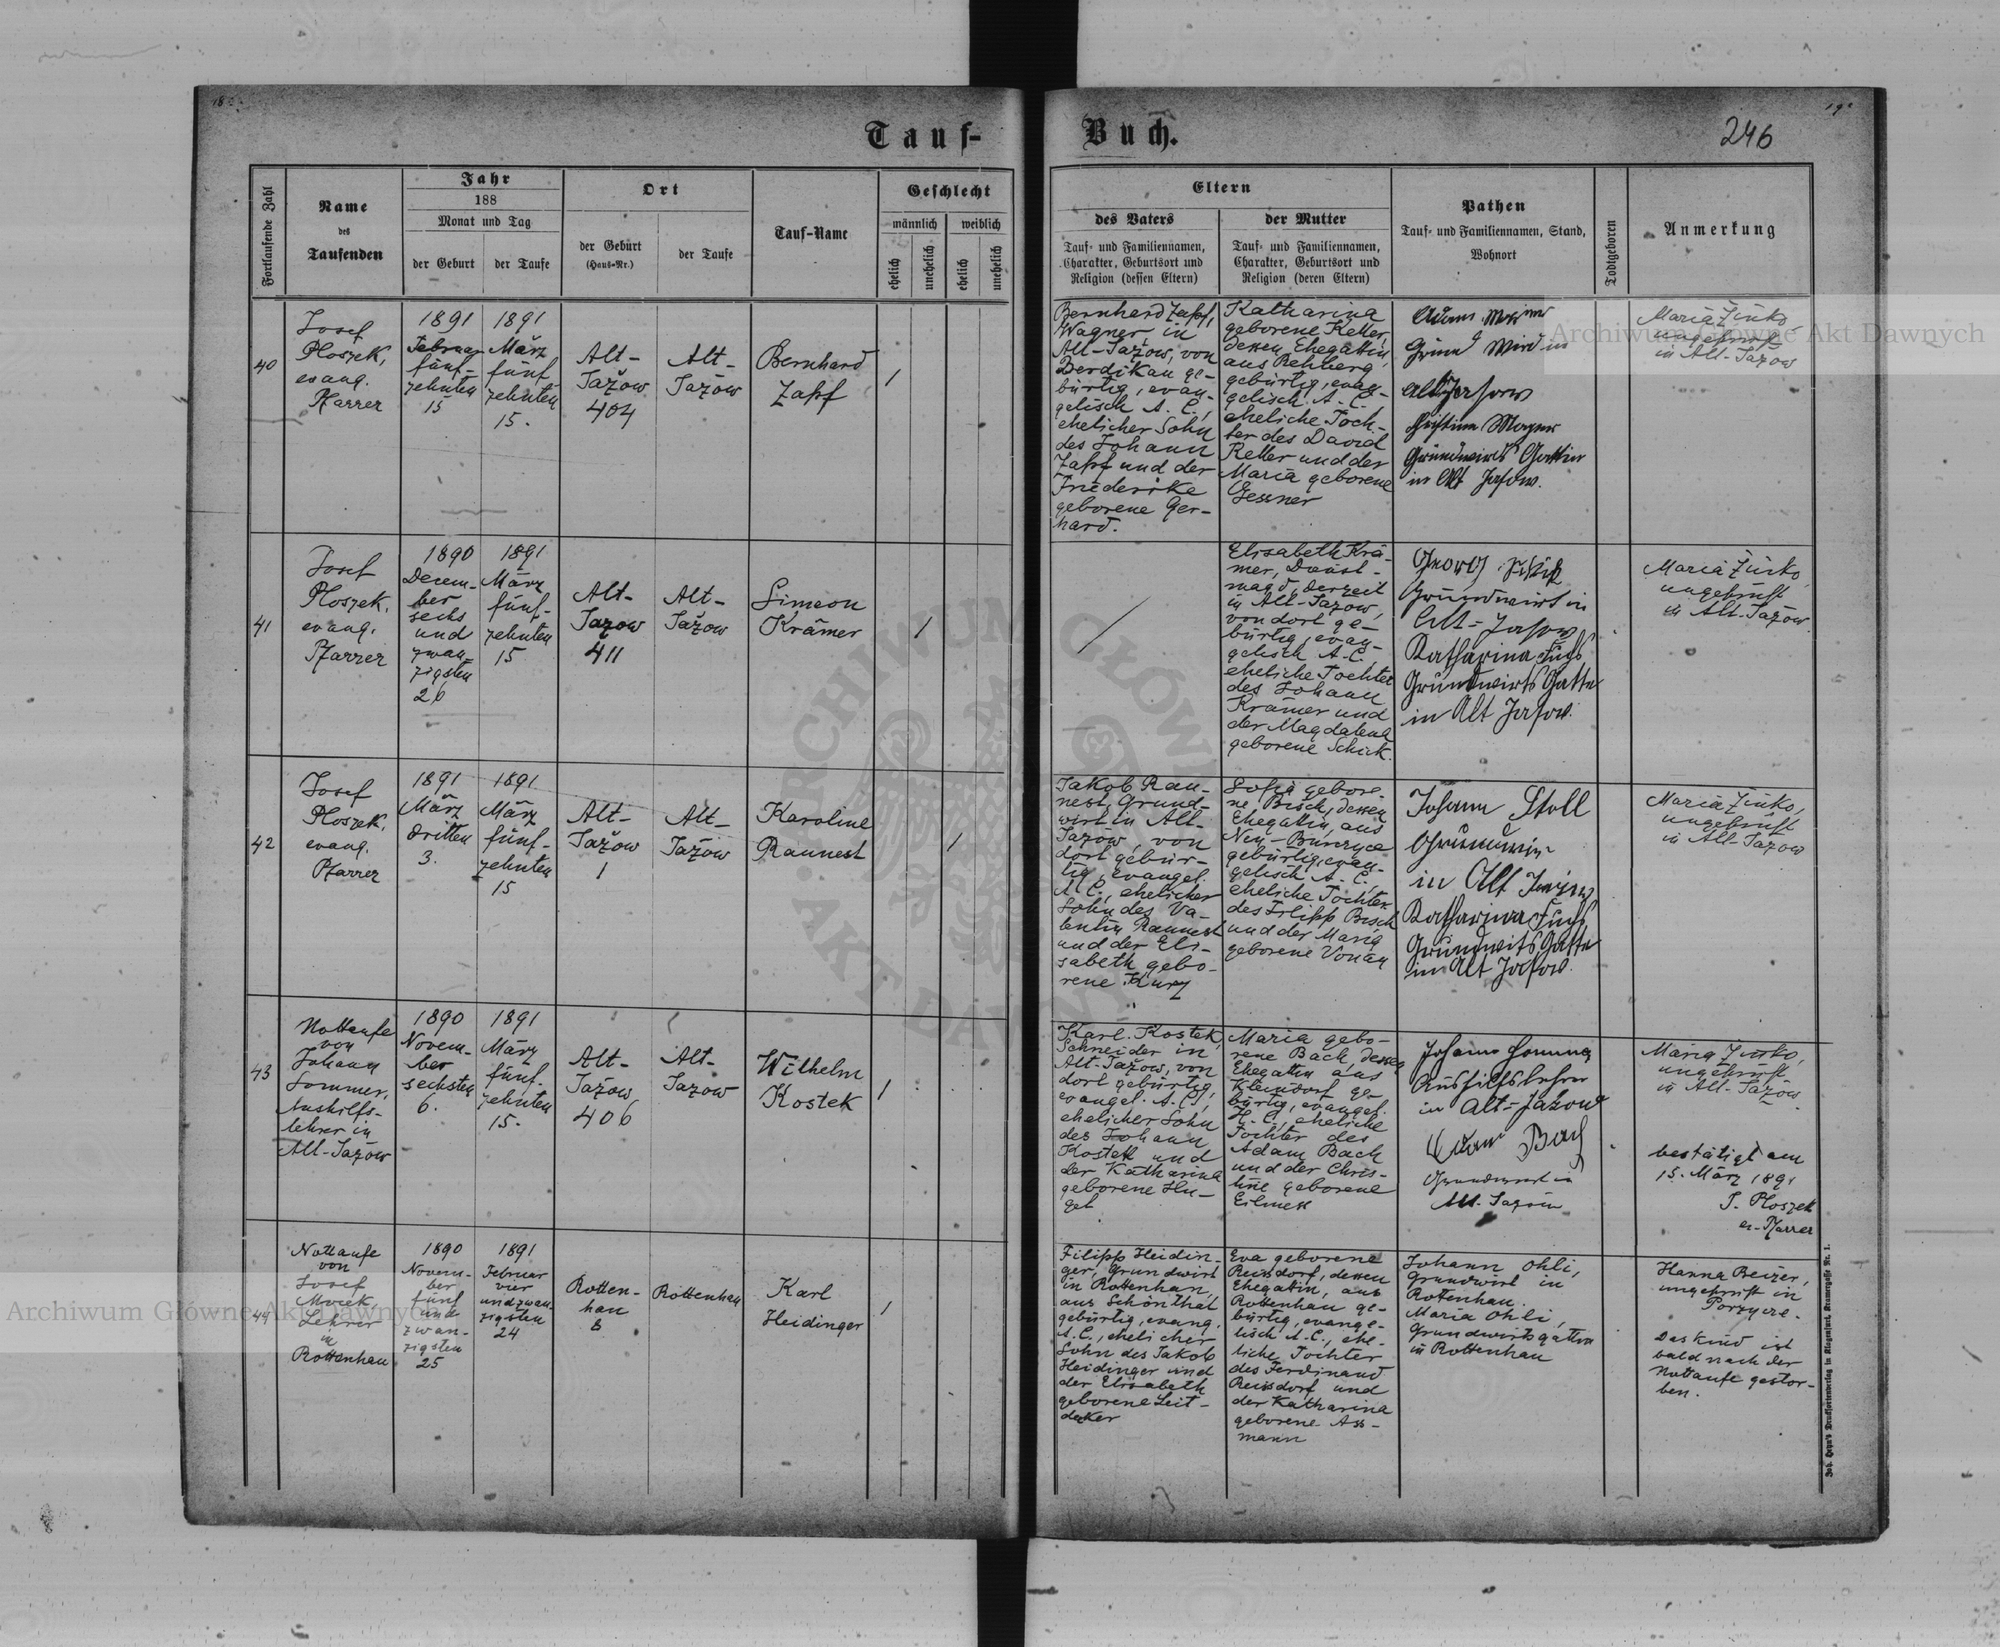 Tauf-
Buch.
246
Fortlaufende Zahl
Name
des
Taufenden
Jahr
188
Monat und Tag
der Geburt
der Taufe
Ort
der Geburt
(Haus-Nr.)
der Taufe
Tauf-Name
Geschlecht
männlich
weiblich
ehelich
unehelich
ehelich
unehelich
Eltern
des Vaters
Tauf- und Familiennamen,
Charakter, Geburtsort und
Religion (dessen Eltern)
der Mutter
Tauf- und Familiennamen,
Charakter, Geburtsort und
Religion (deren Eltern)
Pathen
Tauf- und Familiennamen, Stand,
Wohnort
Todtgeboren
Anmerkung
40
Josef
Ploszek,
evang.
Pfarrer
1891
Februar
fünf-
zehnten
15
1891
März
fünf
zehnten
15.
Alt-
Jażow
404
Alt-
Jażów
Bernhard
Zapf
1
Bernhard Zapf,
Wagner in
Alt-Jażow, von
Berdikau ge-
bürtig, evan-
gelisch A. C.,
ehelicher Sohn
des Johann
Zapf und der
Friederike
geborene Ger-
hard.
Katharina
geborene Keller,
dessen Ehegattin,
aus Rehberg
gebürtig, evan-
gelisch A. C.
eheliche Toch-
ter des David
Keller und der
Maria geborene
Gessner
Adam
Grund Wird in
Alt Jasow
Christina Mayer
Grundwirts Gattin
in Alt Jasow.
Maria Żurko
ungeprüft
in Alt-Jażow
41
Josef
Ploszek,
evang.
Pfarrer
1890
Decem-
ber
sechs
und
zwan-
zigsten
26
1891
März
fünf-
zehnten
15
Alt-
Jazow
411
Alt-
Jażow
Simeon
Krämer
1
Elisabeth Krä-
mer, Dienst-
magd, derzeit
in Alt-Jażow,
von dort ge-
bürtig, evan-
gelisch A. C.
eheliche Tochter
des Johann
Krämer und
der Magdalena
geborene Schick.
Georg Schick
Grundwirt in
Alt-Jasow
Katharina Fuchs
Grundwirts Gatte
in Alt Jasow.
Maria Żurko,
ungeprüft
in Alt-Jażow.
42
Josef
Ploszek,
evang.
Pfarrer
1891
März
dritten
3.
1891
März
fünf-
zehnten
15
Alt-
Jażow
1
Alt-
Jażow
Karoline
Raunest
1
Jakob Rau-
nest, Grund-
wirt in Alt-
Jazow, von
dort gebür-
tig, evangel.
A. C., ehelicher
Sohn des Va-
lentin Raunest
und der Eli-
sabeth gebo-
rene Kurz
Sofia gebore-
ne Bisch, dessen
Ehegattin, aus
Neu-Burczyce
gebürtig, evan-
gelisch A. C.,
eheliche Tochter
des Filipp Bisch
und der Maria
geborene Vonau
Johann Stoll
Grundwirt
in Alt Jazow
Katharina Fuchs
Grundwirts Gatte
in Alt Jasow.
Maria Żurko,
ungeprüft
in Alt-Jażow
43
Nottaufe
von
Johann
Sommer,
Aushilfs-
lehrer in
Alt-Jażow
1890
Novem-
ber
sechsten
6.
1891
März
fünf-
zehnten
15.
Alt-
Jażow
406
Alt-
Jazow
Wilhelm
Kostek
1
Karl Kostek,
Schneider in
Alt-Jażow, von
dort gebürtig,
evangel. A. C.,
ehelicher Sohn
des Johann
Kostek und
der Katharina
geborene Hu-
gel
Maria gebo-
rene Bach, dessen
Ehegattin aus
Kleindorf ge-
bürtig, evangel.
H. C., eheliche
Tochter des
Adam Bach
und der Chris-
tine geborene
Eilmess
Johann Sommer
Aushilfslehrer
in Alt-Jażow
Adam Bach
Grundwirt in
Alt-Jazow
Maria Żurko,
ungeprüft
in Alt-Jażow.
bestätigt am
15. März 1891
J. Ploszek
ev. Pfarrer
44
Nottaufe
von
Josef
Mrock
Lehrer
in
Rottenhan
1890
Novem-
ber
fünf
und
zwan-
zigsten
25
1891
Februar
vier
und zwan-
zigsten
24
Rotten-
han
8
Rottenhan
Karl
Heidinger
1
Filipp Heidin-
ger, Grundwirt
in Rottenhan,
aus Schönthal
gebürtig, evang.
A. C., ehelicher
Sohn des Jakob
Heidinger und
der Elisabeth
geborene Leit-
decker
Eva geborene
Reisdorf, dessen
Ehegattin, aus
Rottenhan ge-
bürtig, evange-
lisch A. C., ehe-
liche Tochter
des Ferdinand
Reisdorf und
der Katharina
geborene Ass-
mann
Johann Ohli,
Grundwirt in
Rotenhan.
Maria Ohli,
Grundwirtsgattin
in Rottenhan
Hanna Beizer,
ungeprüft in
Porzycze.
Das Kind ist
bald nach der
Nottaufe gestor-
ben.
Joh. Heyn's Drucksortenverlag in Klagenfurt, Kramergasse Nr. 1.
Archiwum Główne Akt Dawnych
Archiwum Główne Akt Dawnych
ARCHIWUM GŁÓWNE
AKT DAWNYCH